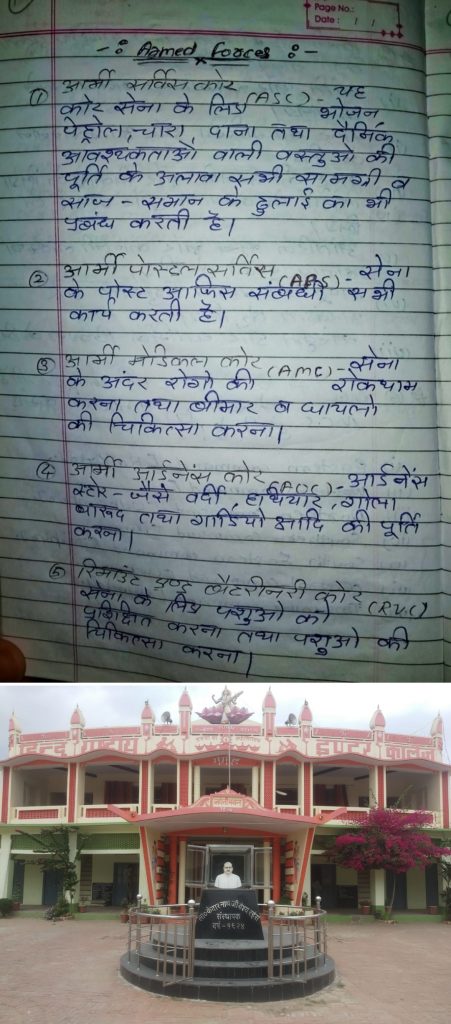 Page No.:
Date : / /
-: Armed Forces :-
① आर्मी सर्विस कोर (ASC) - यह
कोर सेना के लिए भोजन
पेट्रोल, चारा, दाना तथा दैनिक
आवश्यकताओ वाली वस्तुओ की
पूर्ति के अलावा सभी सामग्री व
साज - समान के ढुलाई का भी
प्रबंध करती है।
② आर्मी पोस्टल सर्विस (APS) - सेना
के पोस्ट आफिस संबंधी सभी
कार्य करती है।
③ आर्मी मेडिकल कोर (AMC) - सेना
के अंदर रोगो की रोकथाम
करना तथा बीमार व घायलो
की चिकित्सा करना।
④ आर्मी आर्डनेंस कोर (AOC) - आर्डनेंस
स्टोर - जैसे वर्दी, हथियार, गोला
बारूद तथा गाडियो आदि की पूर्ति
करना।
⑤ रिमाउंट एण्ड वैटरीनरी कोर (RVC)
सेना के लिए पशुओ को
प्रशिक्षित करना तथा पशुओ की
चिकित्सा करना।
हिन्द राष्ट्रीय इण्टर कालेज
संस्थापक
वर्ष - १९२४